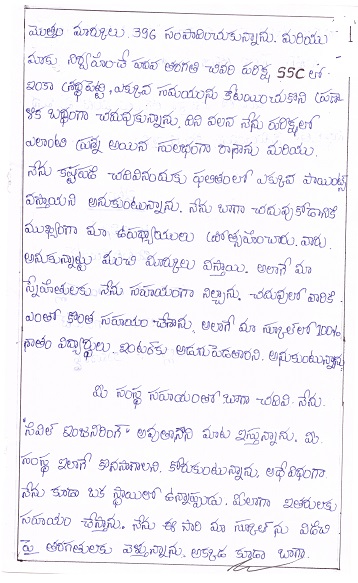 మొత్తం మార్కులు. 396 సంపాదించుకున్నాను. మరియు
మాకు నిర్వహించే పదవ తరగతి చివరి పరీక్ష SSC లో
ఇంకా శ్రద్ధపెట్టి, ఎక్కువ సమయును కేటయించుకొని ప్రణా
ళిక బద్ధంగా చదువుకున్నాను. దీని వలన నేను పరీక్షలో
ఎలాంటి ప్రశ్న అయిన సులభంగా రాసాను మరియు.
నేను కష్టపడి చదివినందుకు ఫలితంలో ఎక్కువ పాయింట్స్
వస్తాయని అనుకుంటున్నాను. నేను బాగా చదువుకోడానికి
ముఖ్యంగా మా ఉపాధ్యాయులు ప్రోత్సహించారు. వారు.
అనుకున్నట్టు మంచి మార్కులు వస్తాయి. అలాగే మా
స్నేహితులకు నేను సహాయంగా నిల్చాను. చదువులో వారికి
ఎంతో కొంత సహాయం చేశాను. అలాగే మా స్కూల్‌లో 100%
శాతం విద్యార్థులు. ఇంటర్‌కు అడుగుపెడతారని. అనుకుంటున్నాను.
మీ సంస్థ సహాయంతో బాగా చదివి నేను.
"సివిల్ ఇంజనిరింగ్" అవుతానని మాట ఇస్తున్నాను. మీ
సంస్థ ఇలాగే కొనసాగాలని. కోరుకుంటున్నాను. అదేవిధంగా
నేను కూడా ఒక స్థాయిలో ఉన్నాప్పుడు. మీలాగా ఇతరులకు
సహాయం చేస్తాను. నేను ఈ సారి మా స్కూల్ ను విడిచి
పై తరగతులకు వెళ్తున్నాను. అక్కడ కూడా బాగా.